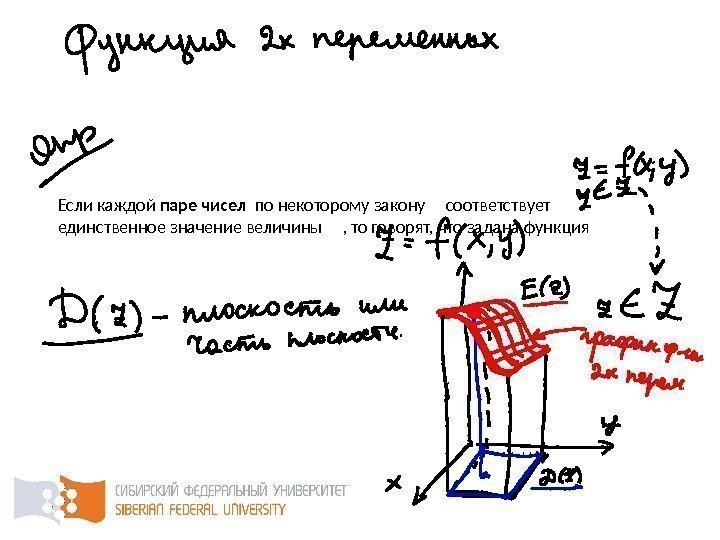 Функция 2х переменных
Опр
z = f(x; y)
Если каждой паре чисел по некоторому закону соответствует
единственное значение величины , то говорят, что задана функция
z = f(x, y)
E(z)
z ∈ Z
D(z) – плоскость или
часть плоскости.
график ф-ии
2х перем
y
x
D(z)
СИБИРСКИЙ ФЕДЕРАЛЬНЫЙ УНИВЕРСИТЕТ
SIBERIAN FEDERAL UNIVERSITY